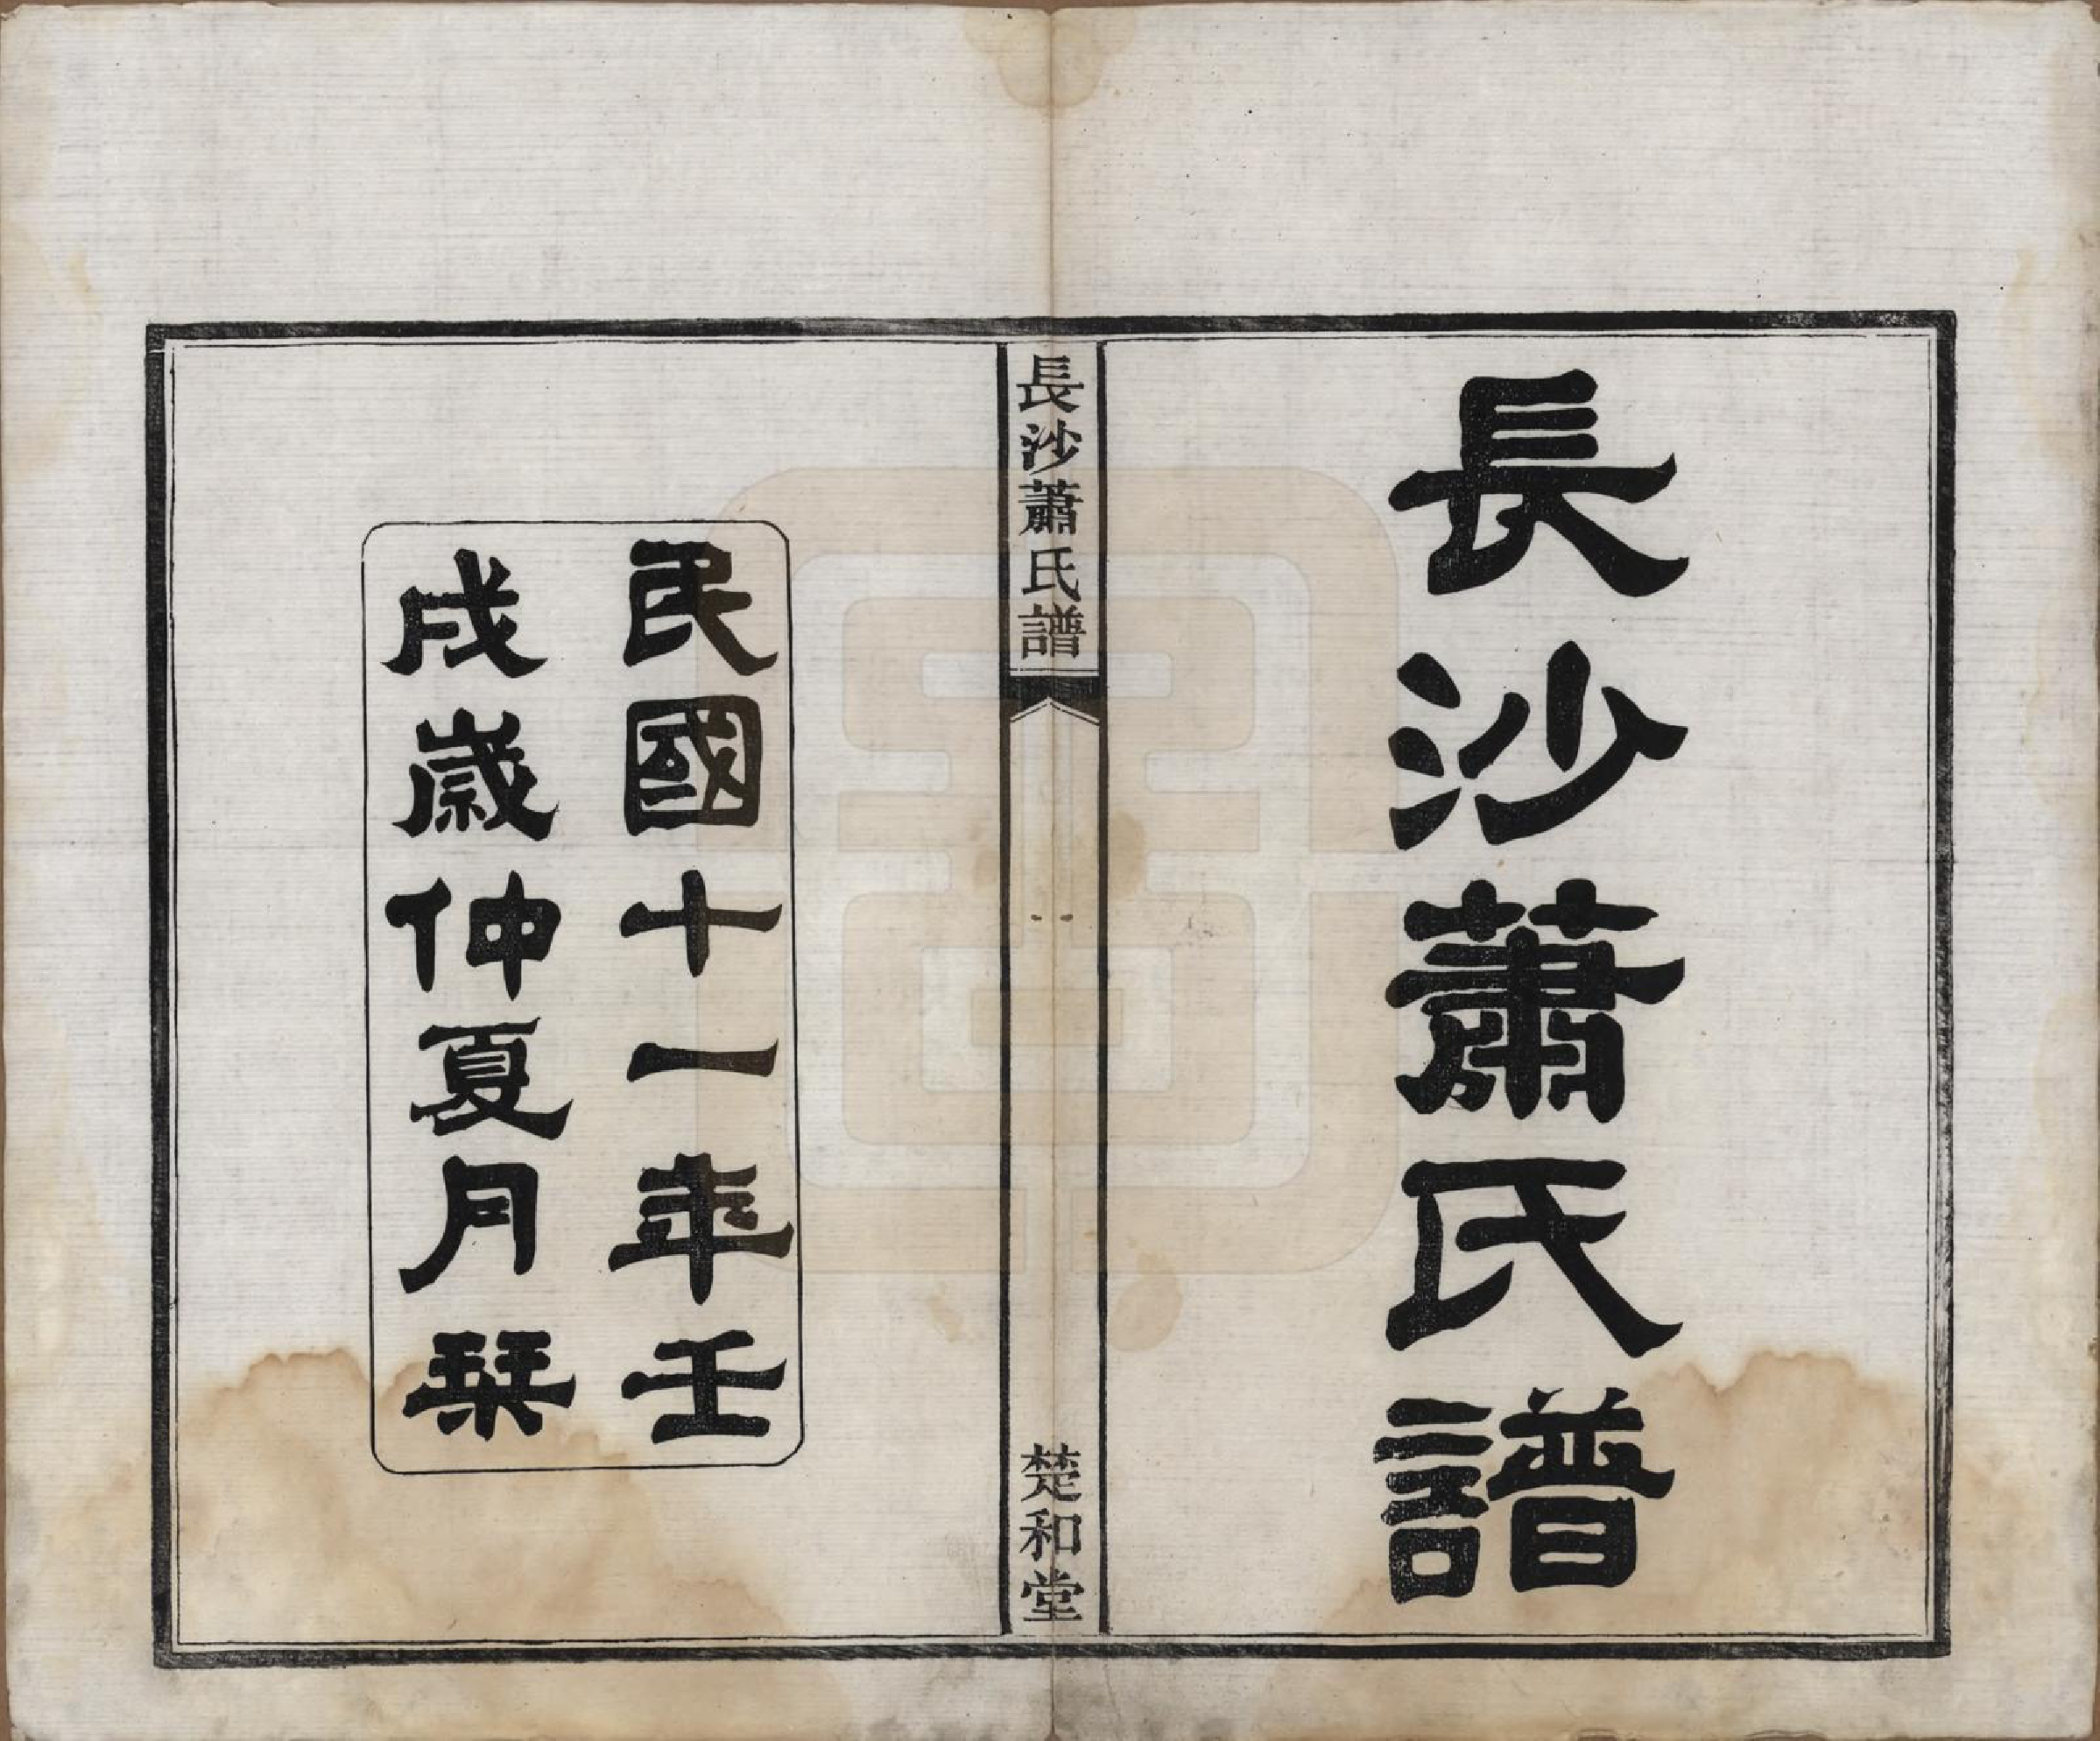 長沙蕭氏譜
長沙蕭氏譜
楚和堂
民國十一年壬
戌歲仲夏月栞